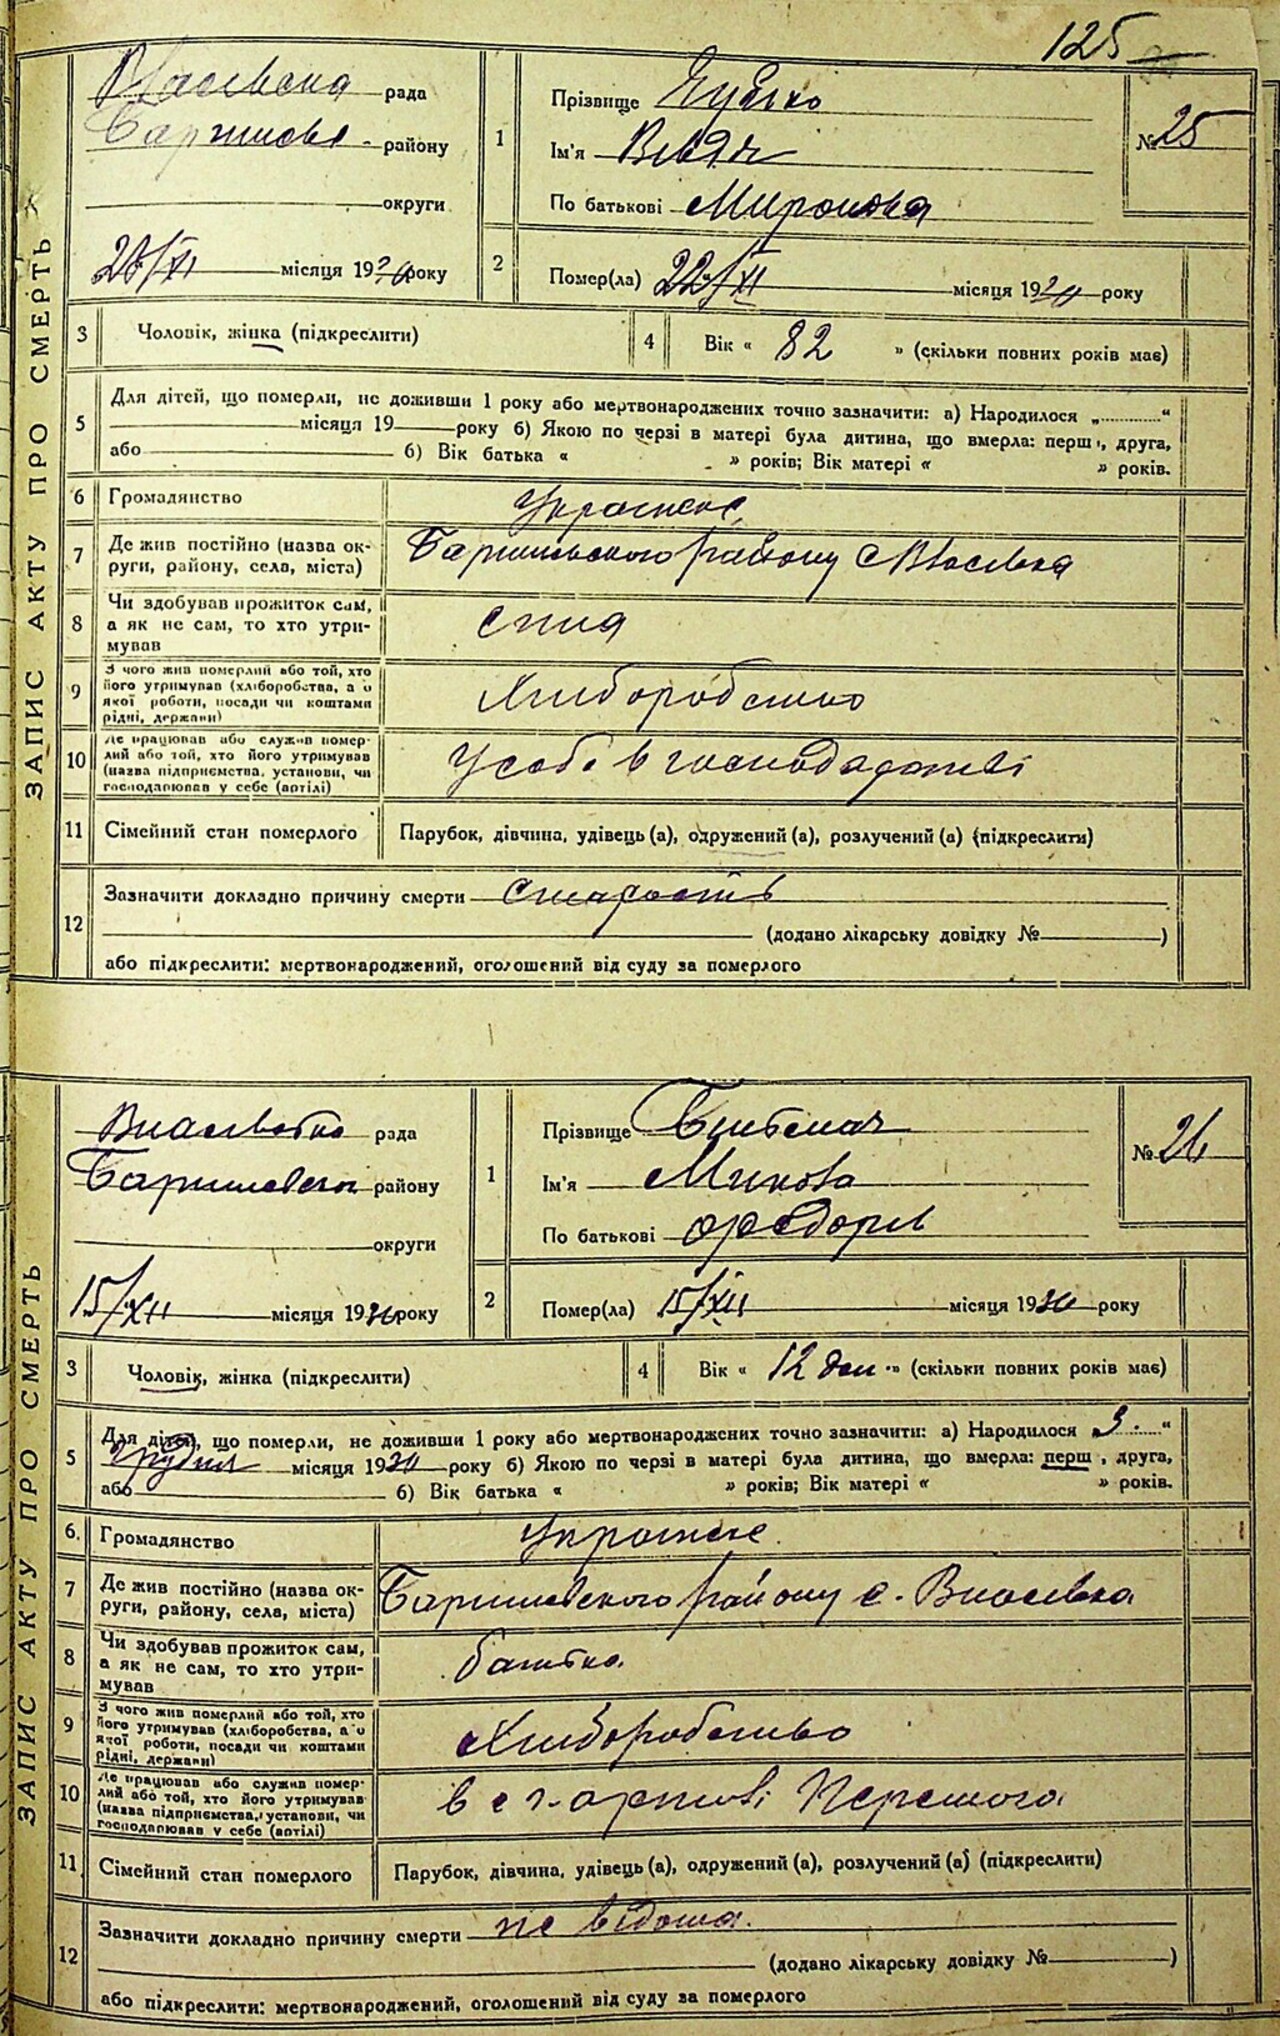 125
ЗАПИС АКТУ ПРО СМЕРТЬ
Власівська рада
Баришівс. району
округи
28/XI місяця 1930 року
1
Прізвище
Ім'я
По батькові Миронова
№ 25
2
Помер(ла) 22/XI місяця 1930 року
3 Чоловік, жінка (підкреслити)
4 Вік « 82 » (скільки повних років має)
5 Для дітей, що померли, не доживши 1 року або мертвонароджених точно зазначити: а) Народилося „ “
місяця 19 року б) Якою по черзі в матері була дитина, що вмерла: перш , друга,
або б) Вік батька « » років; Вік матері « » років.
6 Громадянство Украінске
7 Де жив постійно (назва округи, району, села, міста) Баришівського району с Власівка
8 Чи здобував прожиток сам, а як не сам, то хто утримував
9 З чого жив померлий або той, хто його утримував (хліборобства, з якої роботи, посади чи коштами рідні, держави) Хліборобство
10 Де працював або служив померлий або той, хто його утримував (назва підприємства, установи, чи господарював у себе (артілі) У себе в господарстві
11 Сімейний стан померлого Парубок, дівчина, удівець (а), одружений (а), розлучений (а) (підкреслити)
12 Зазначити докладно причину смерти старость
(додано лікарську довідку № )
або підкреслити: мертвонароджений, оголошений від суду за померлого
ЗАПИС АКТУ ПРО СМЕРТЬ
рада
Баришівського району
округи
15/XII місяця 1930 року
1
Прізвище
Ім'я Микола
По батькові Федорів
№ 26
2
Помер(ла) 15/XII місяця 1930 року
3 Чоловік, жінка (підкреслити)
4 Вік « 12 ден » (скільки повних років має)
5 Для дітей, що померли, не доживши 1 року або мертвонароджених точно зазначити: а) Народилося „ 3. “
Грудня місяця 1930 року б) Якою по черзі в матері була дитина, що вмерла: перш , друга,
або б) Вік батька « » років; Вік матері « » років.
6. Громадянство Украінске
7 Де жив постійно (назва округи, району, села, міста) Баришівського району с. Власівка
8 Чи здобував прожиток сам, а як не сам, то хто утримував батько
9 З чого жив померлий або той, хто його утримував (хліборобства, з якої роботи, посади чи коштами рідні, держави) Хліборобство
10 Де працював або служив померлий або той, хто його утримував (назва підприємства, установи, чи господарював у себе (артілі) в с г. артілі
11 Сімейний стан померлого Парубок, дівчина, удівець (а), одружений (а), розлучений (а) (підкреслити)
12 Зазначити докладно причину смерти не відома.
(додано лікарську довідку № )
або підкреслити: мертвонароджений, оголошений від суду за померлого